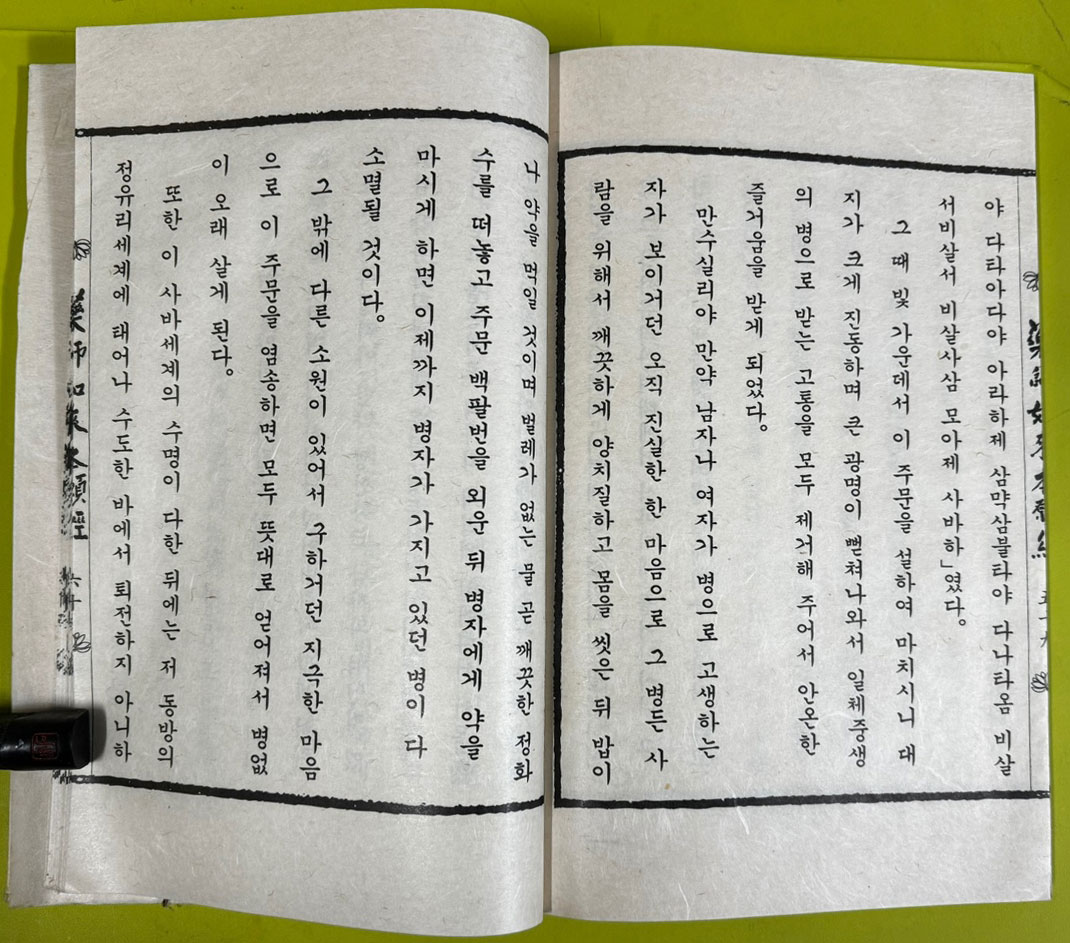 야 다타아다야 아라하제 삼먁삼불타야 다냐타옴 비살
서비살서 비살사삼 모아제 사바하」였다。
그 때 빛 가운데서 이 주문을 설하여 마치시니 대
지가 크게 진동하며 큰 광명이 뻗쳐나와서 일체중생
의 병으로 받는 고통을 모두 제거해 주어서 안온한
즐거움을 받게 되었다。
만수실리야 만약 남자나 여자가 병으로 고생하는
자가 보이거던 오직 진실한 한 마음으로 그 병든 사
람을 위해서 깨끗하게 양치질하고 몸을 씻은 뒤 밥이
나 약을 먹일 것이며 벌레가 없는 물 곧 깨끗한 정화
수를 떠놓고 주문 백팔번을 외운 뒤 병자에게 약을
마시게 하면 이제까지 병자가 가지고 있던 병이 다
소멸될 것이다。
그 밖에 다른 소원이 있어서 구하거던 지극한 마음
으로 이 주문을 염송하면 모두 뜻대로 얻어져서 병없
이 오래 살게 된다。
또한 이 사바세계의 수명이 다한 뒤에는 저 동방의
정유리세계에 태어나 수도한 바에서 퇴전하지 아니하
藥師如來本願經 六十